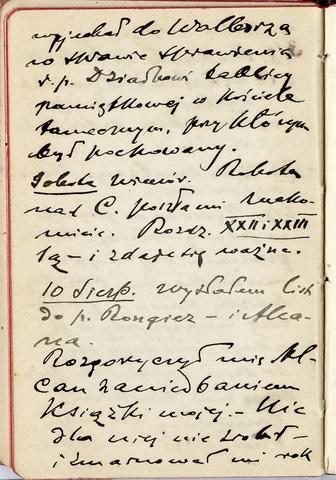 wyjechał do Wallersza
w sprawie sprawienia
ś.p. Dziadkowi tablicy
pamiątkowej w kościele
tamecznym, przy którym
był pochowany.
Sobota wieczór. Robota
nad C. poszła mi znako-
micie. Rozdz. XXII i XXIII
są – i zdaje się ważne.
10 Sierp. wysłałem list
do p. Rongier – i Alca-
na.
Rozgoryczył mię Al-
can zaniedbaniem
książki mojej. – Nic
dla niej nie zrobił –
i zmarnował mi rok